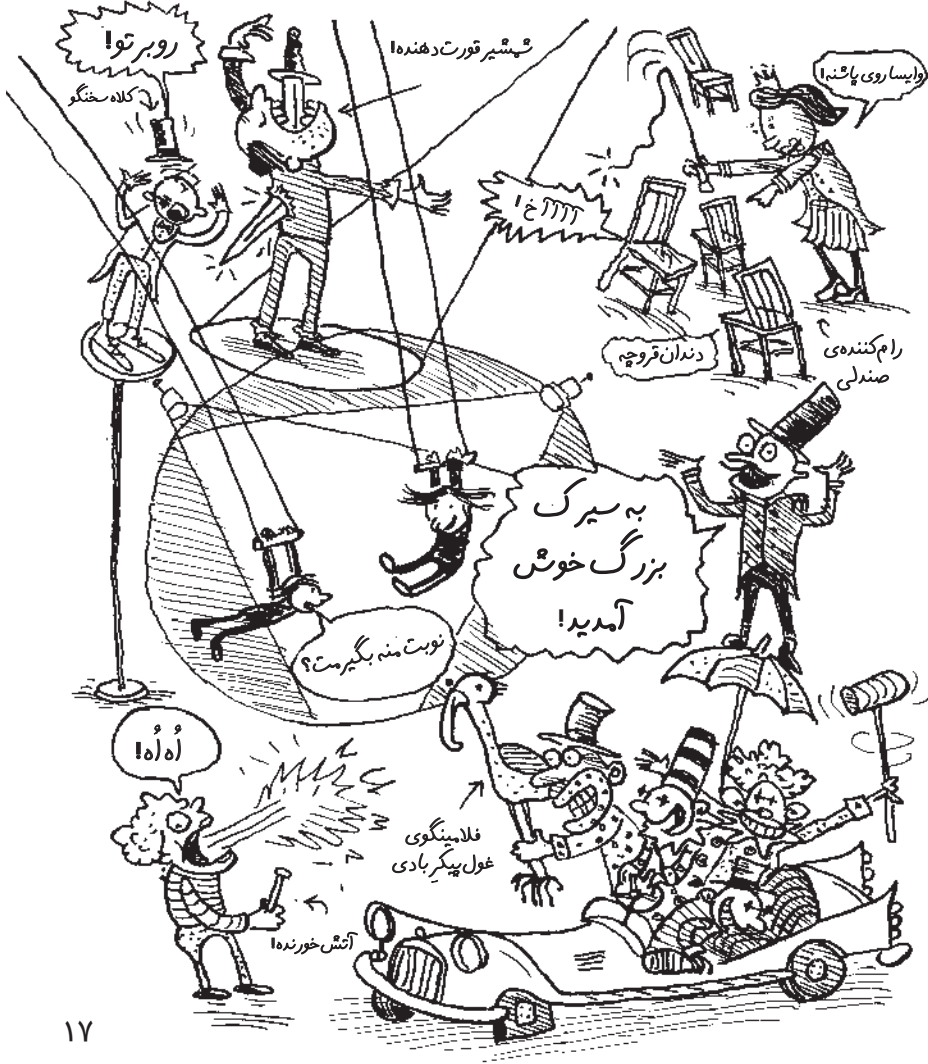 روبرتو!
کلاه سخنگو
شمشیر قورت دهنده!
وایسا روی پاشنه!
آآآآخ!
دندان قروچه
رام کننده‌ی
صندلی
به سیرک
بزرگ خوش
آمدید!
نوبت منه بگیرمت؟
اُه اُه!
فلامینگوی
غول پیکرِ بادی
آتش خورنده!
۱۷